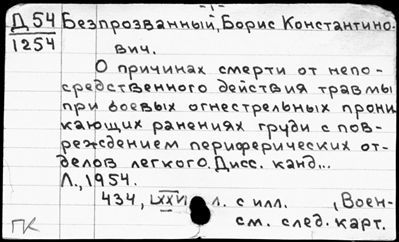 - 1 -
Д 54 Безпрозванный, Борис Константино-
1254
вич.
О причинах смерти от непо-
средственного действия травмы
при боевых огнестрельных прони
кающих ранениях груди с пов-
реждением периферических от-
делов легкого. Дисс. канд...
Л., 1954.
434, LXXVI л. с илл. , Воен-
ГК см. след. карт.